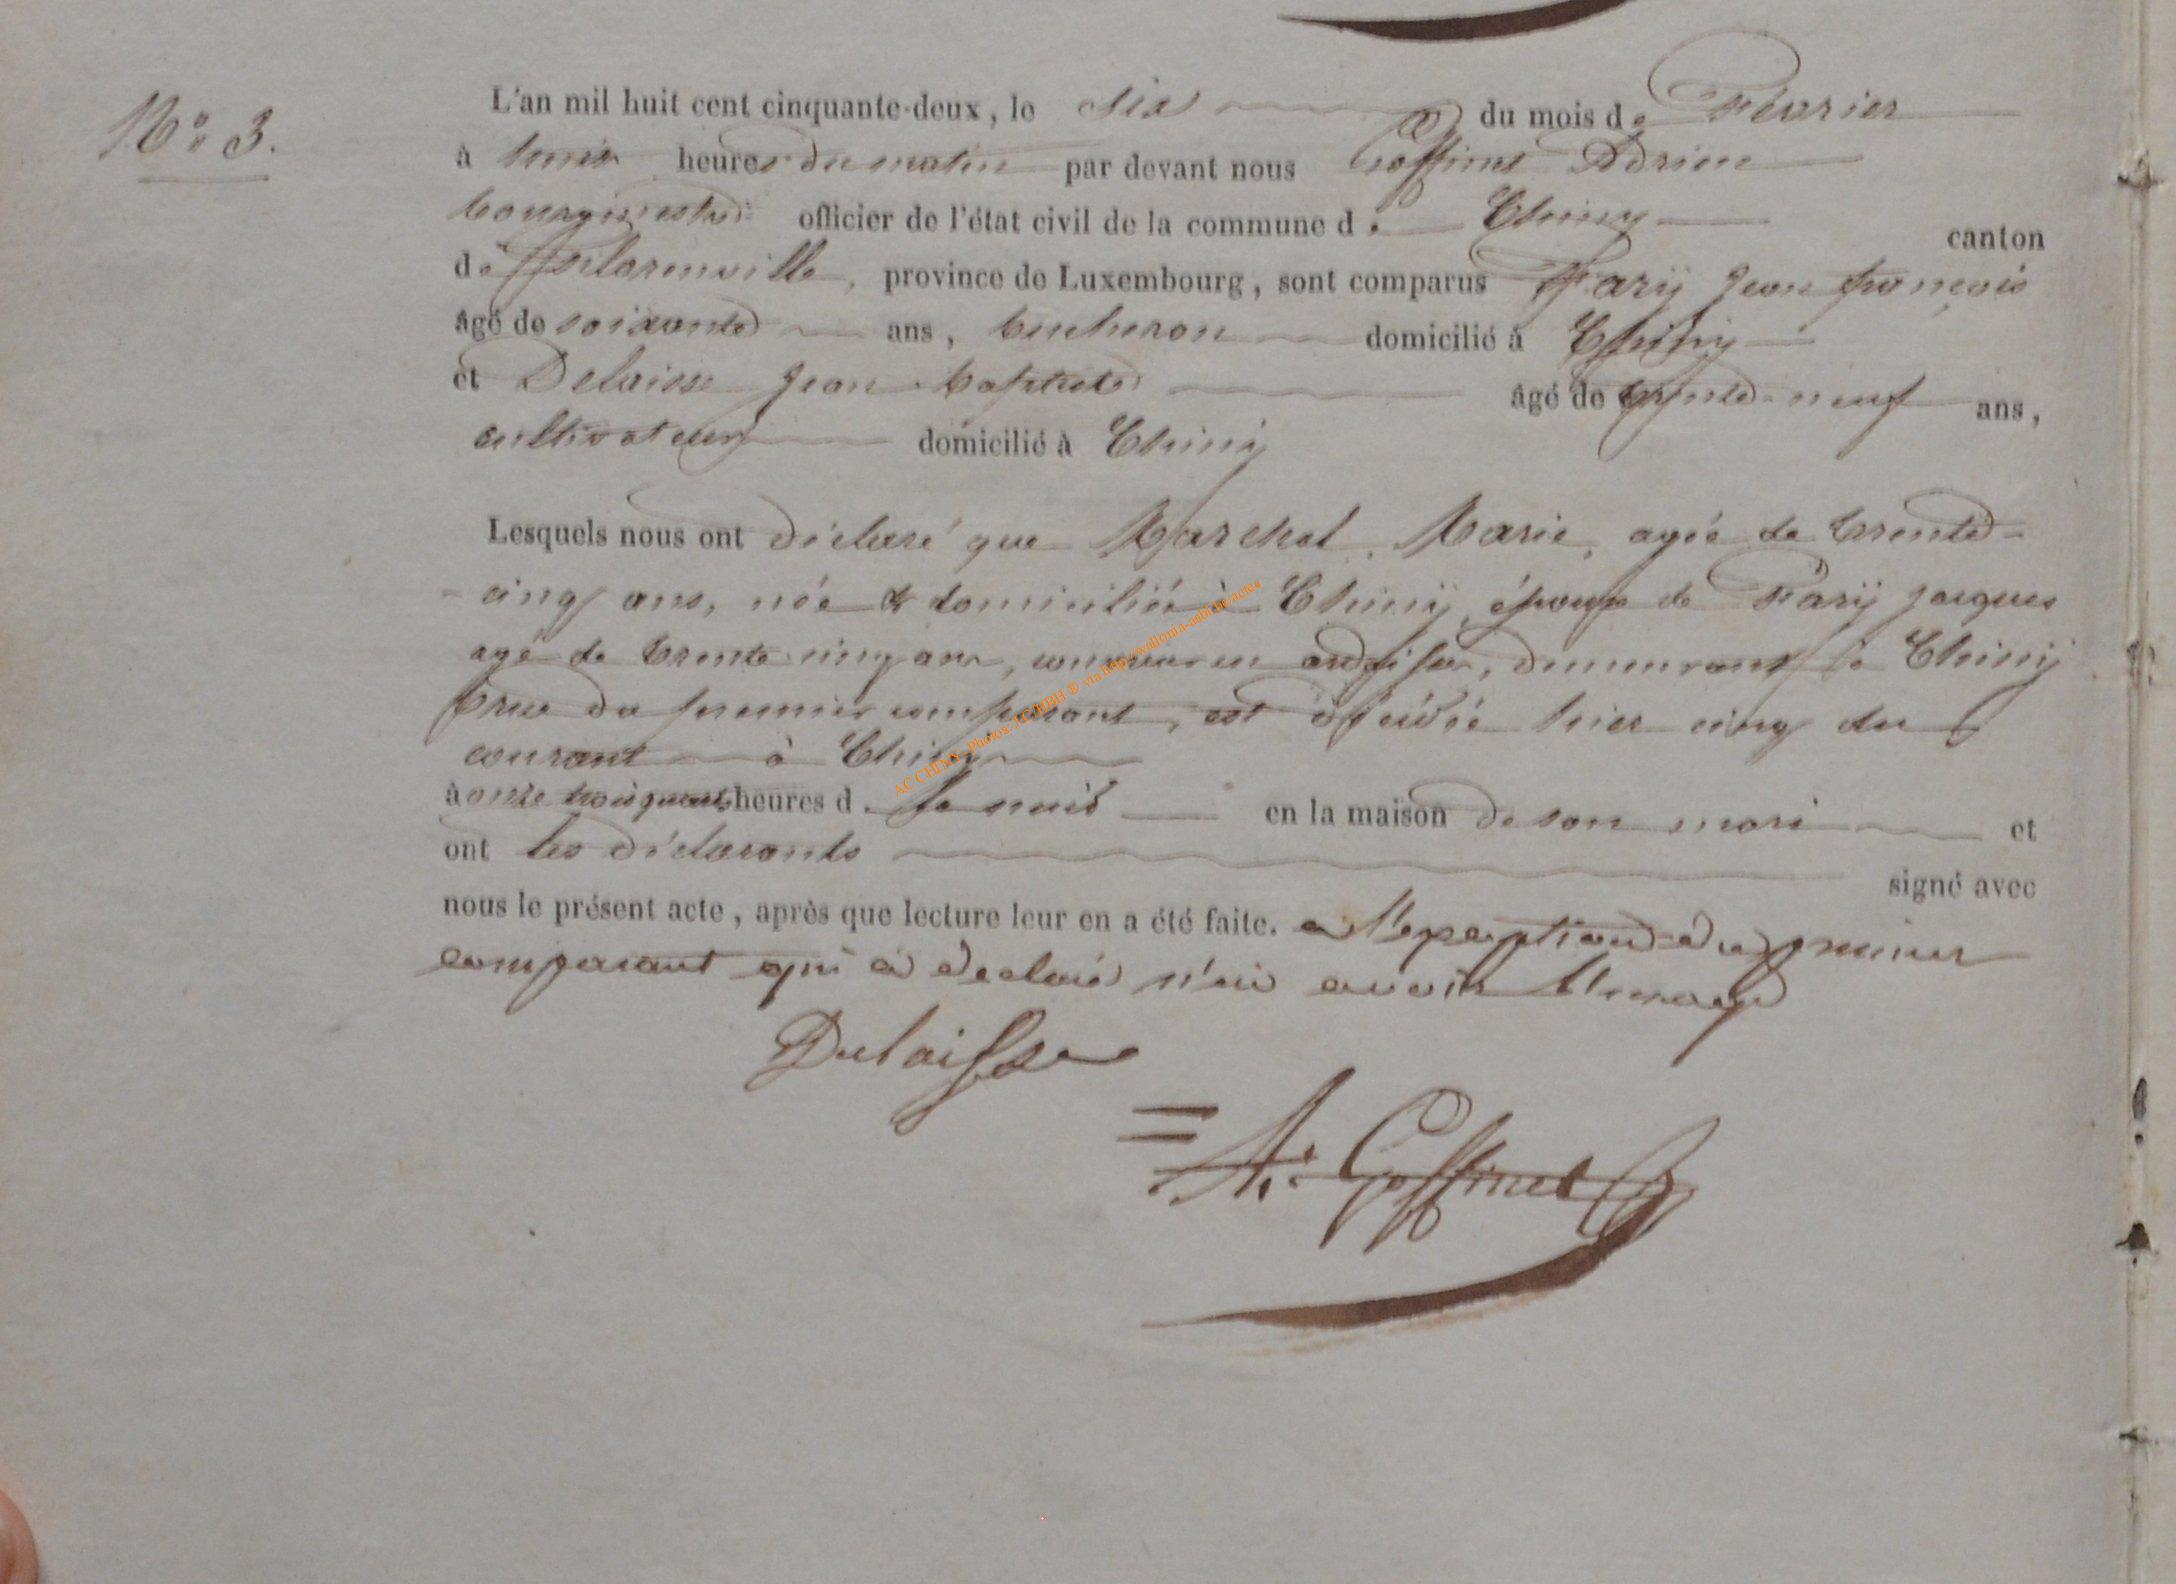 N° 3.
L'an mil huit cent cinquante-deux, le six du mois de Février
à huit heures du matin par devant nous Goffinet Adrien
bourgmestre officier de l'état civil de la commune de Chiny canton
de Florenville, province de Luxembourg, sont comparus Fary Jean françois
âgé de soixante ans, bucheron domicilié à Chiny
et Delaisse Jean baptiste âgé de trente-neuf ans,
cultivateur domicilié à Chiny
Lesquels nous ont déclaré que Marchal, Marie, agée de trente-
-cinq ans, née & domiciliée à Chiny, épouse de Fary Jacques
agé de trente cinq ans, en ardoises, demeurant à Chiny
du premier comparant, est décédée hier cinq du
courant à Chiny
à onze trois quarts heures de la nuit en la maison de son mari et
ont les déclarants signé avec
nous le présent acte, après que lecture leur en a été faite. a l'exception du premier
comparant qui a déclaré n'en avoir l'usage
Delaisse
= A. Goffinet
AC CHINY - Photos J.C. HBH ® via http://wallonia-asbl.be/actes